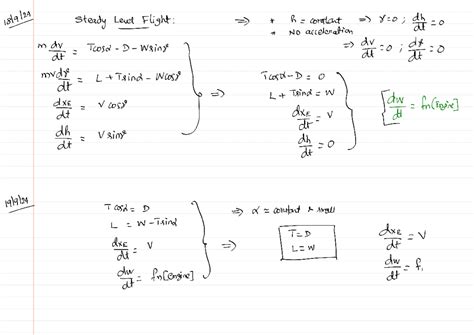 18/9/24
Steady Level Flight: ⇒ * h = constant ⇒ γ=0 ; dh/dt = 0
* No acceleration ⇒ dv/dt = 0 ; dγ/dt = 0
m dv/dt = Tcosα - D - Wsinγ
mv dγ/dt = L + Tsinα - Wcosγ
dx_E/dt = V cosγ
dh/dt = V sinγ
⇒
Tcosα - D = 0
L + Tsinα = W
dx_E/dt = V
dh/dt = 0
[dw/dt = fn[Engine]
19/9/24
Tcosα = D
L = W - Tsinα
dx_E/dt = V
dw/dt = fn[Engine]
⇒ α = constant & small
⇒
T = D
L = W
dx_E/dt = V
dw/dt = f